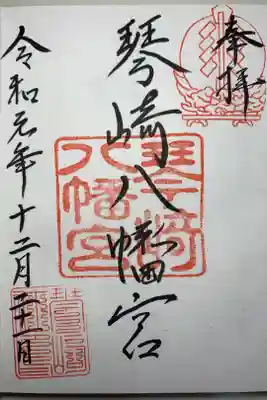 奉拝
琴崎八幡宮
琴崎
八幡宮
令和元年十二月二十一日